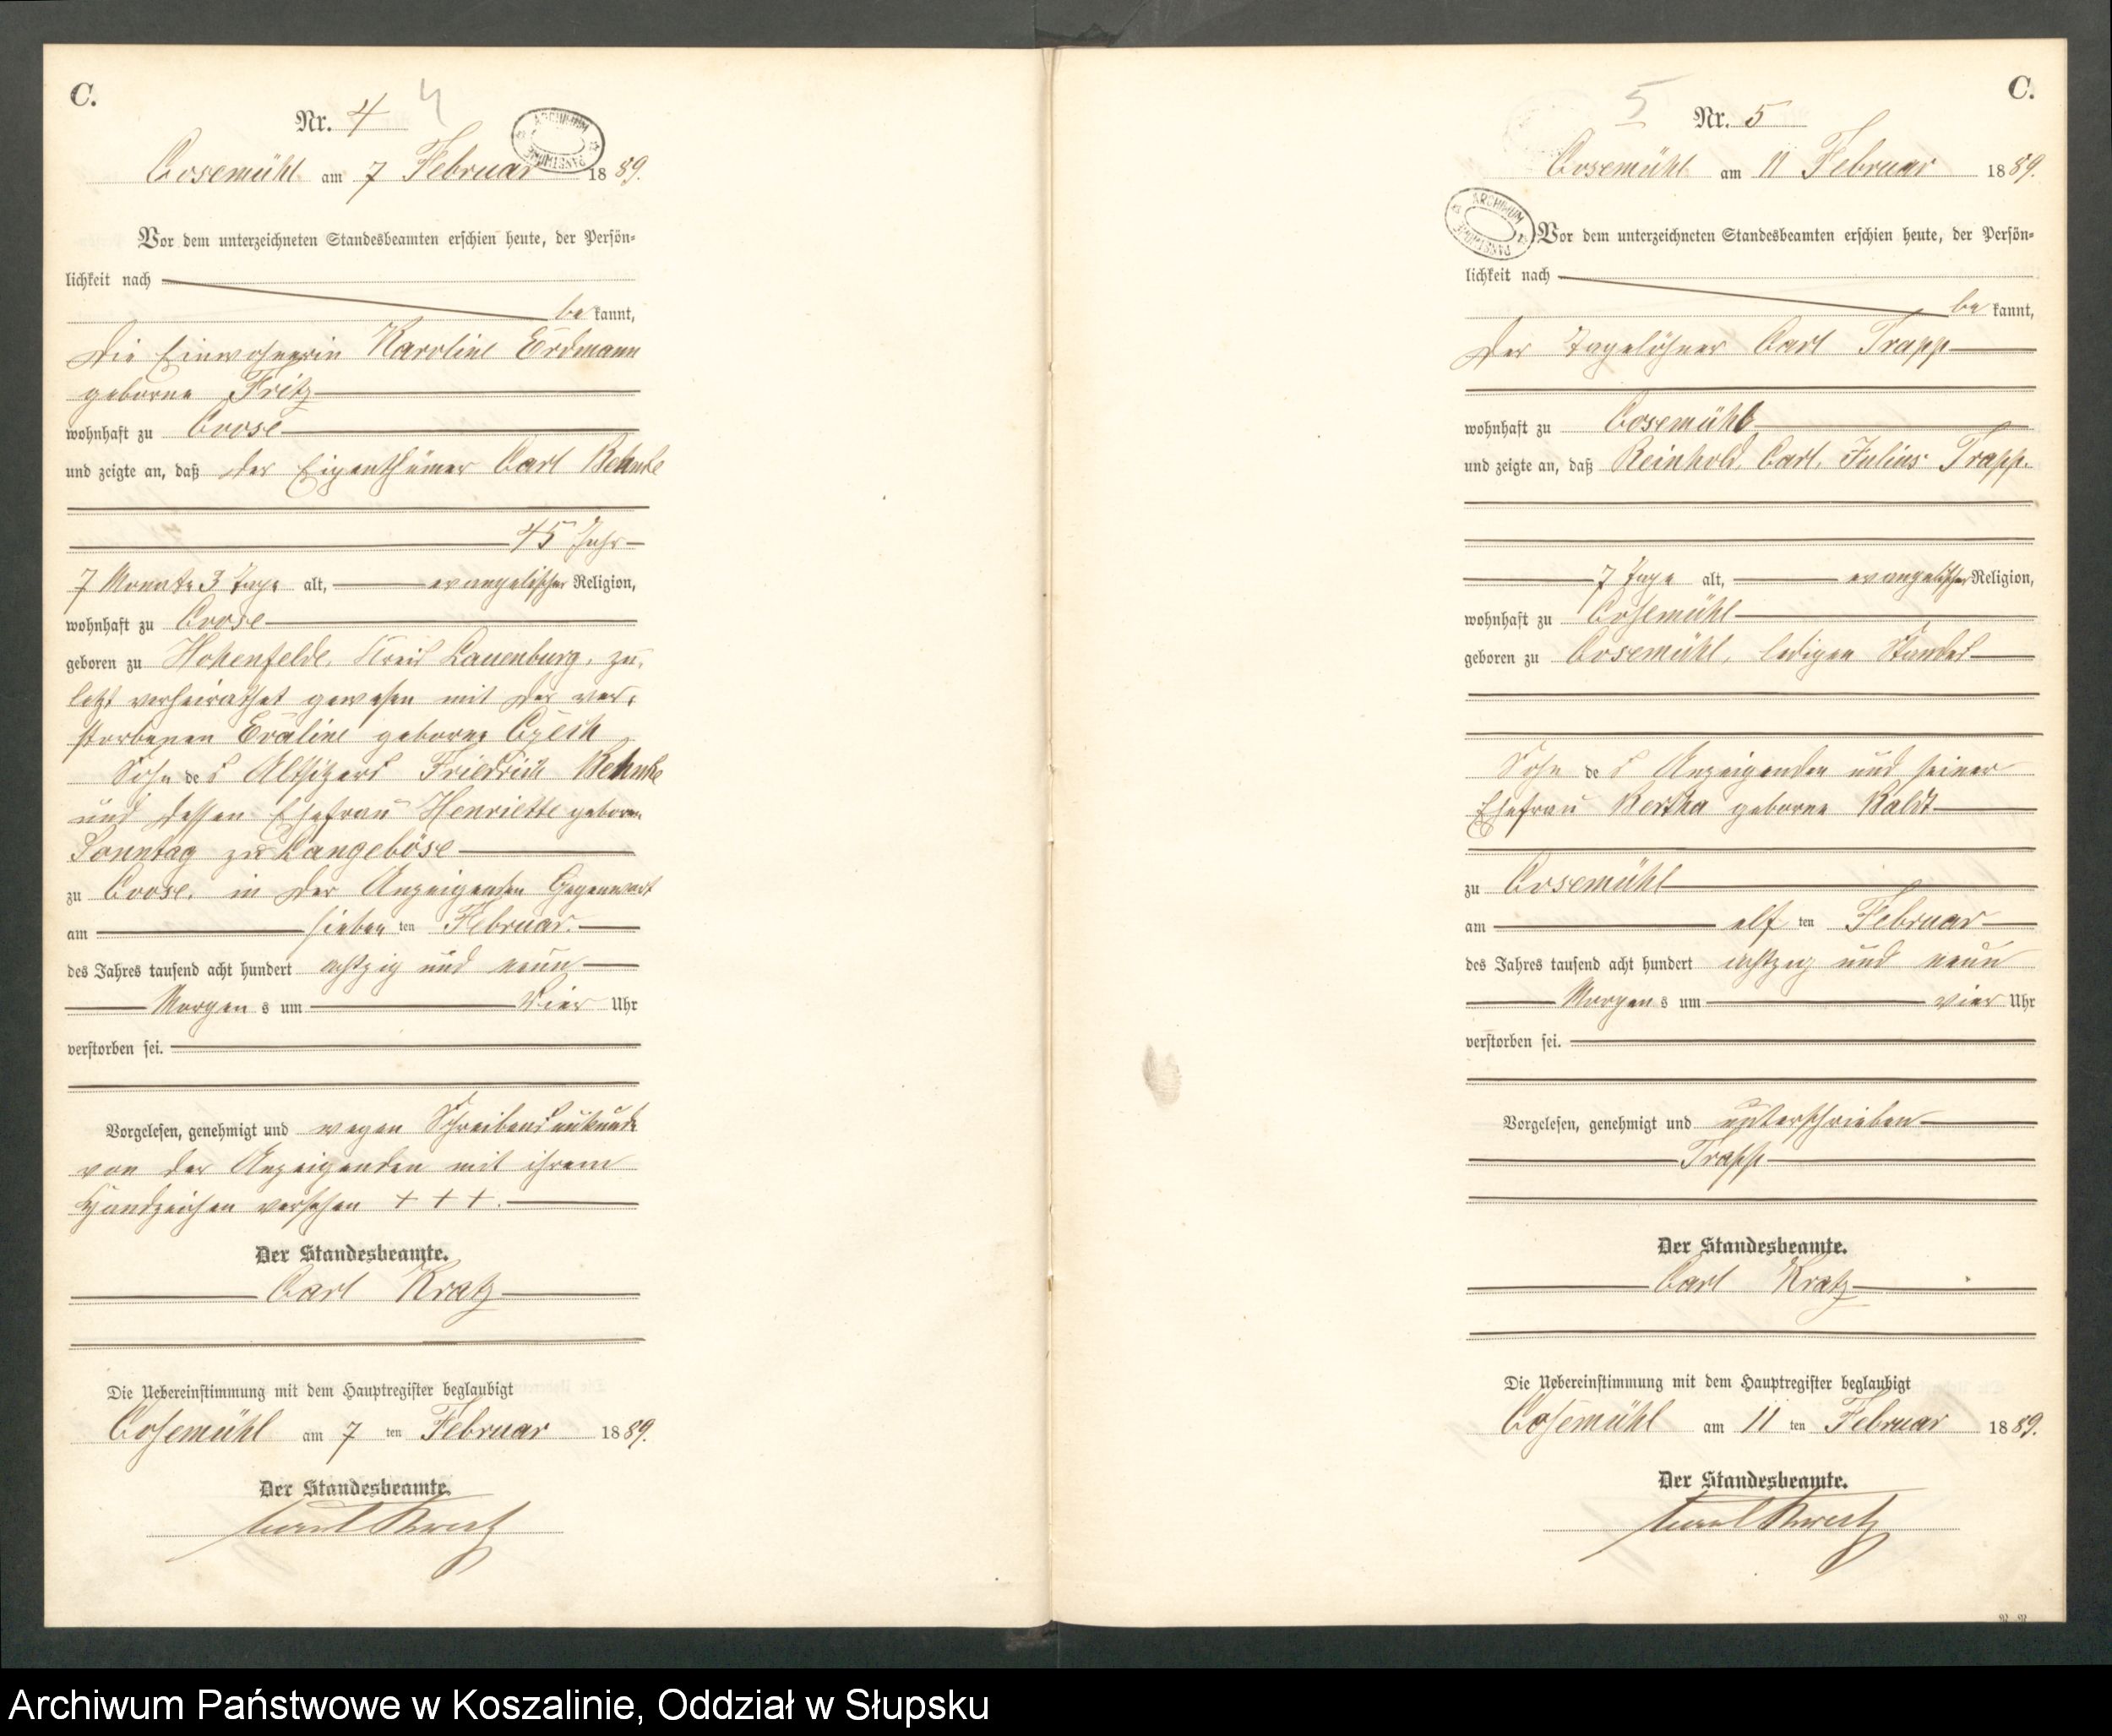 C.
Nr. 4 4
ARCHIWUM PAŃSTWOWE
Cosemühl am 7 Februar 1889.
Vor dem unterzeichneten Standesbeamten erschien heute, der Persön-
lichkeit nach
bekannt,
die Einwohnerin Karoline Erdmann
geborne Fritz
wohnhaft zu Coose
und zeigte an, daß der Eigenthümer Carl Behnke
45 Jahr
7 Monate 3 Tage alt, evangelischer Religion,
wohnhaft zu Coose
geboren zu Hohenfelde, Kreis Lauenburg, zu-
letzt verheirathet gewesen mit der ver-
storbenen geborne
Sohn des Altsitzers Friedrich Behnke
und dessen Ehefrau Henriette geborne
Sonntag zu Langeböse
zu Coose, in der Anzeigenden Gegenwart
am sieben ten Februar
des Jahres tausend acht hundert achtzig und neun
Morgens um Vier Uhr
verstorben sei.
Vorgelesen, genehmigt und wegen Schreibensunkunde
von der Anzeigenden mit ihrem
Handzeichen versehen + + +.
Der Standesbeamte.
Carl Kratz
Die Uebereinstimmung mit dem Hauptregister beglaubigt
Cosemühl am 7 ten Februar 1889.
Der Standesbeamte.
Carl Kratz
C.
5 Nr. 5
Cosemühl am 11 Februar 1889.
ARCHIWUM PAŃSTWOWE
Vor dem unterzeichneten Standesbeamten erschien heute, der Persön-
lichkeit nach
bekannt,
der Tagelöhner Carl Trapp
wohnhaft zu Cosemühl
und zeigte an, daß Reinhold, Carl, Julius Trapp.
7 Tage alt, evangelischer Religion,
wohnhaft zu Cosemühl
geboren zu Cosemühl, ledigen Standes
Sohn des Anzeigenden und seiner
Ehefrau Bertha geborne Baldt
zu Cosemühl
am elf ten Februar
des Jahres tausend acht hundert achtzig und neun
Morgens um vier Uhr
verstorben sei.
Vorgelesen, genehmigt und unterschrieben
Trapp
Der Standesbeamte.
Carl Kratz
Die Uebereinstimmung mit dem Hauptregister beglaubigt
Cosemühl am 11 ten Februar 1889.
Der Standesbeamte.
Carl Kratz
Archiwum Państwowe w Koszalinie, Oddział w Słupsku